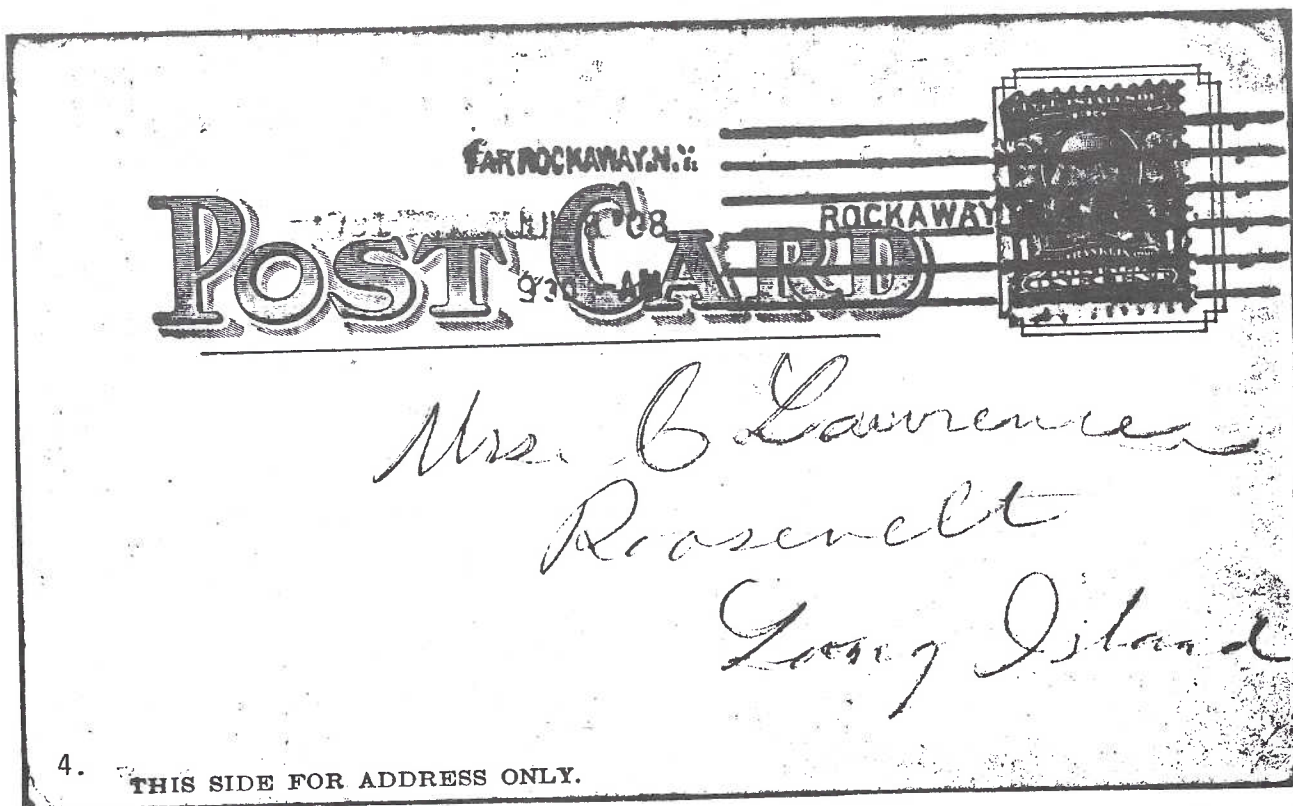 FAR ROCKAWAY, N.Y.
8 '08
930 AM
ROCKAWAY
POST CARD
FRANKLIN
ONE CENT
Mrs. C Lawrence
Roosevelt
Long Island
4.
THIS SIDE FOR ADDRESS ONLY.